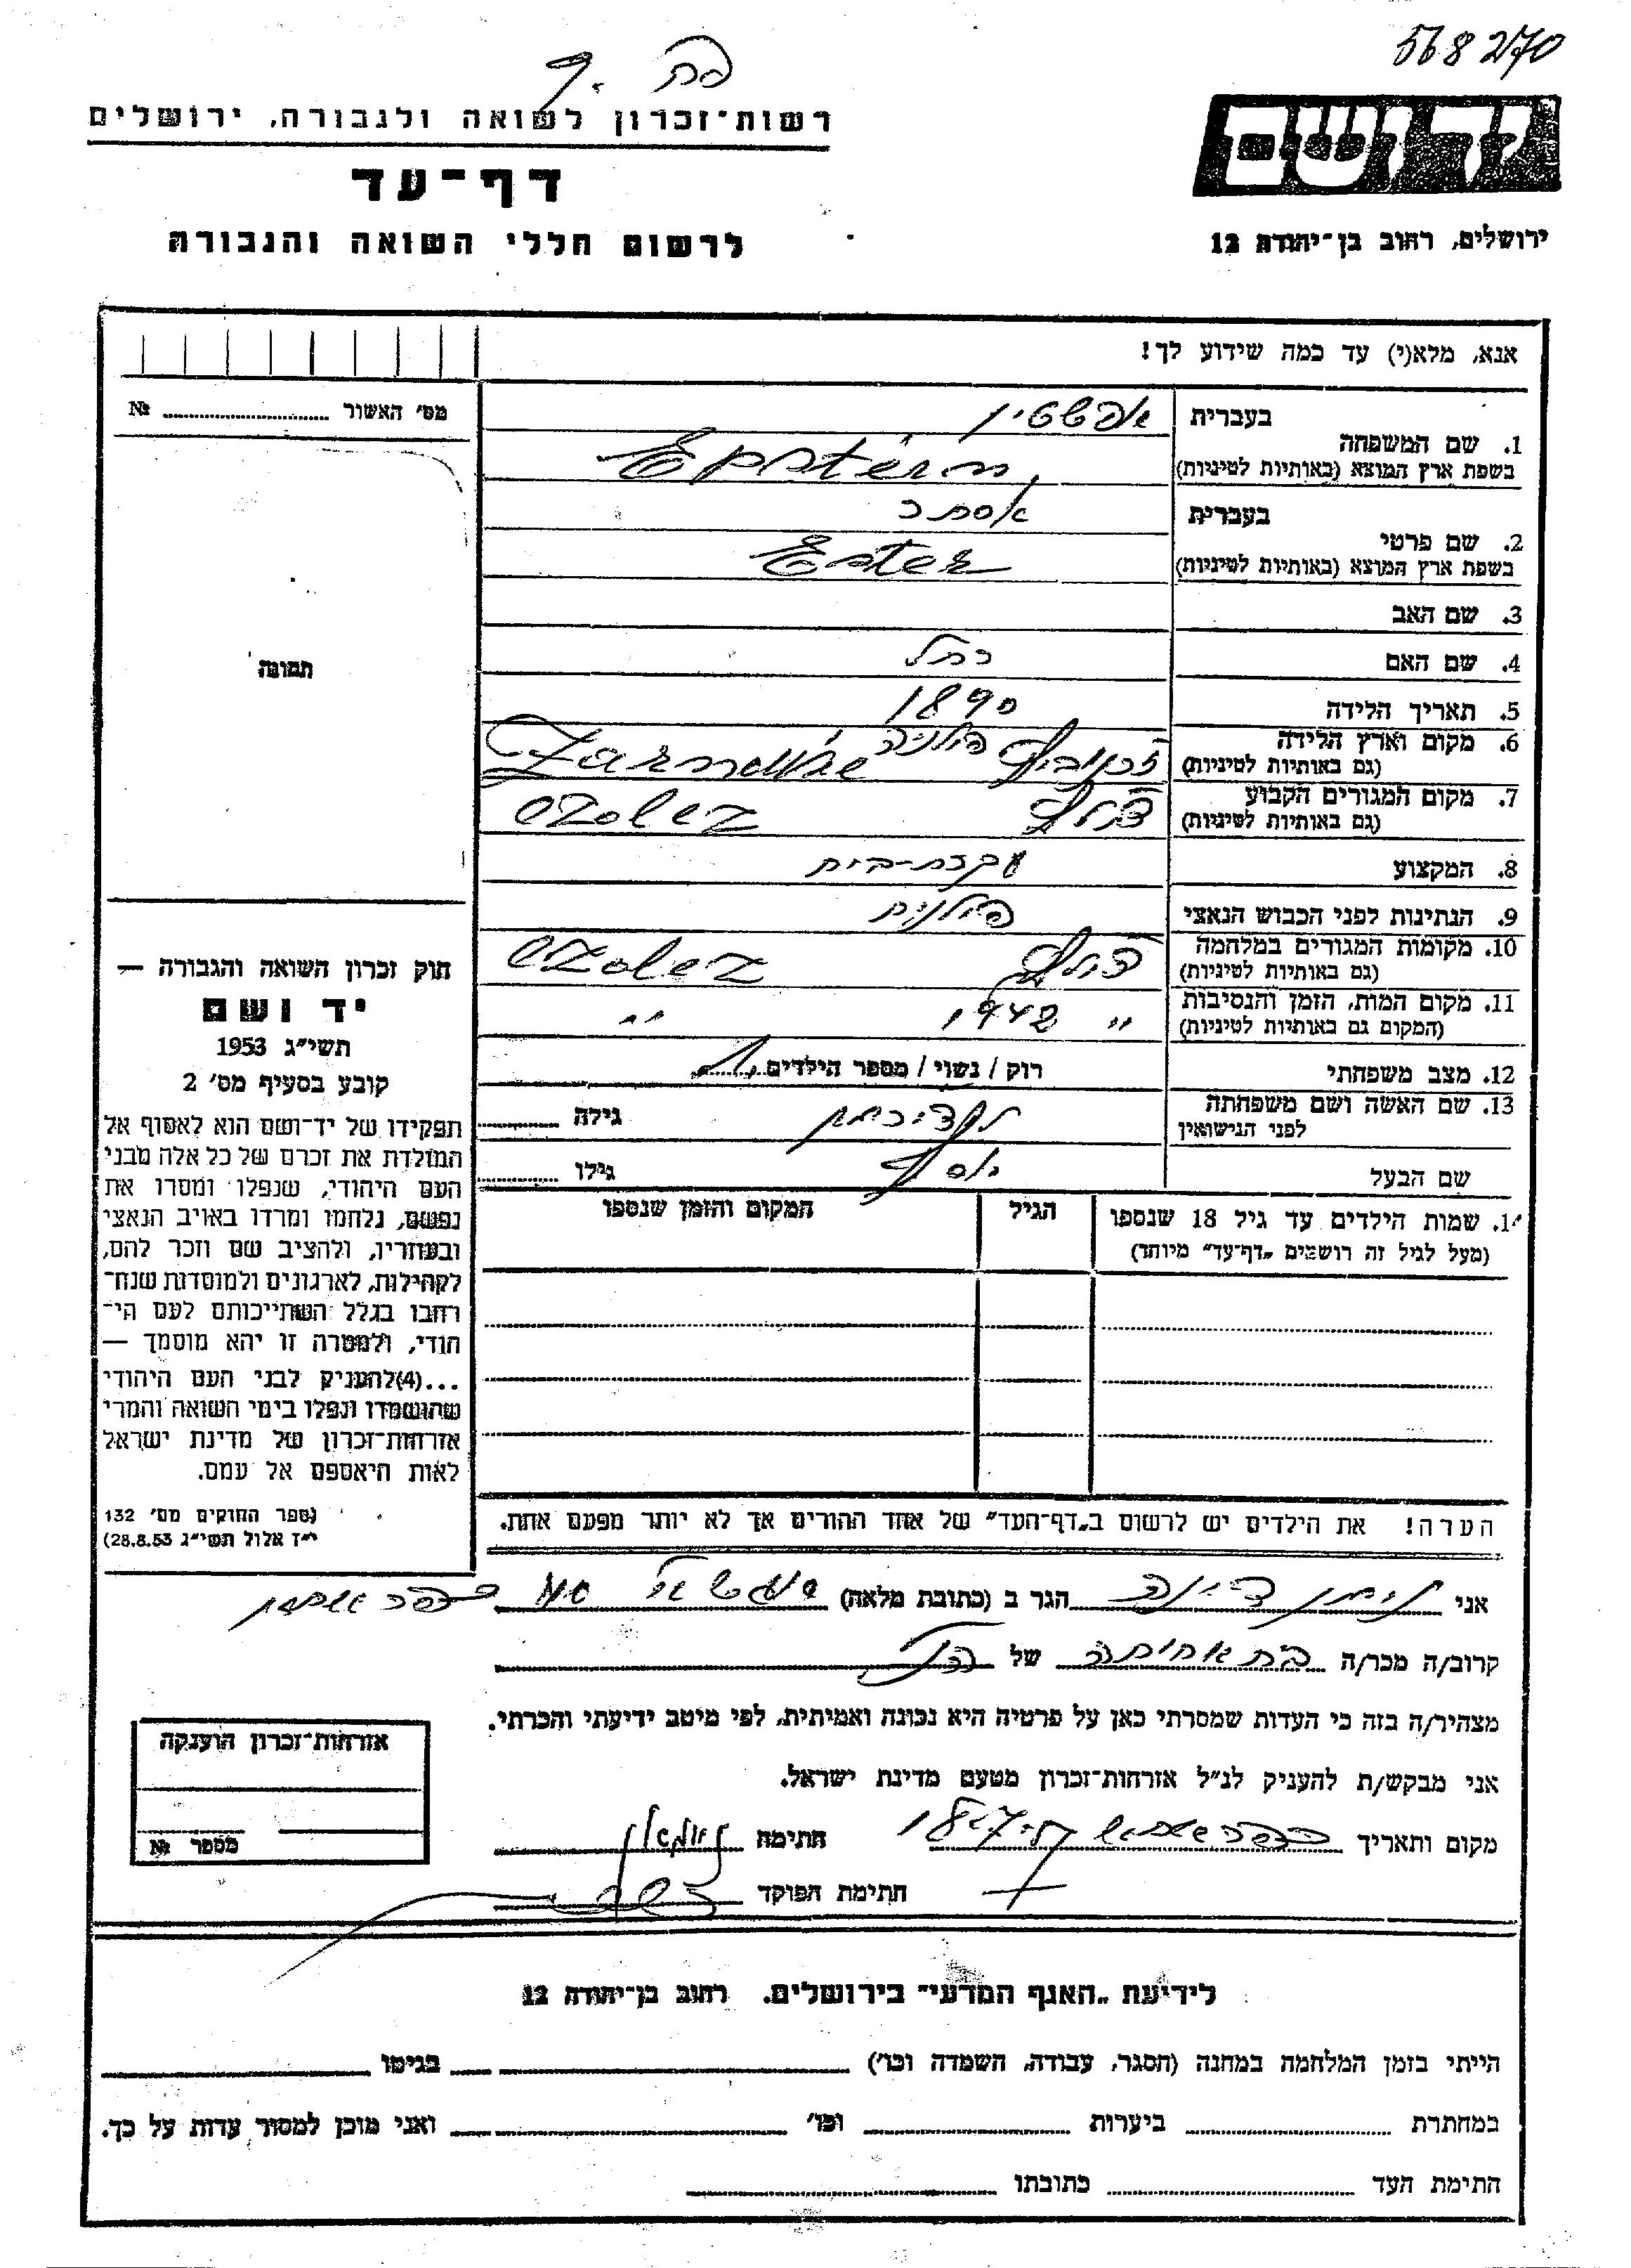 568270
פה
רשות־זכרון לשואה ולגבורה, ירושלים
דף־עד
לרשום חללי השואה והגבורה
יד ושם
ירושלים, רחוב בן־יהודה 12
אנא, מלא(י) עד כמה שידוע לך!
מס׳ האשור № 
תמונה
בעברית אפשטיין
1. שם המשפחה
בשפת ארץ המוצא (באותיות לטיניות) Epstein
בעברית אסתר
2. שם פרטי
בשפת ארץ המוצא (באותיות לטיניות) Ester
3. שם האב
4. שם האם רחל
5. תאריך הלידה 1890
6. מקום וארץ הלידה פולניה
(גם באותיות לטיניות)
7. מקום המגורים הקבוע
(גם באותיות לטיניות)
8. המקצוע עקרת-בית
9. הנתינות לפני הכבוש הנאצי פולנית
10. מקומות המגורים במלחמה
(גם באותיות לטיניות)
11. מקום המות, הזמן והנסיבות " 1942 "
(המקום גם באותיות לטיניות)
12. מצב משפחתי רוק / נשוי / מספר הילדים
13. שם האשה ושם משפחתה
לפני הנישואין גילה
שם הבעל יוסף גילו
1. שמות הילדים עד גיל 18 שנספו הגיל המקום והזמן שנספו
(מעל לגיל זה רושמים „דף־עד" מיוחד)
הערה! את הילדים יש לרשום ב„דף־העד" של אחד ההורים אך לא יותר מפעם אחת.
חוק זכרון השואה והגבורה —
יד ושם
תשי״ג 1953
קובע בסעיף מס׳ 2
תפקידו של יד־ושם הוא לאסוף אל
המולדת את זכרם של כל אלה מבני
העם היהודי, שנפלו ומסרו את
נפשם, נלחמו ומרדו באויב הנאצי
ובעוזריו, ולהציב שם וזכר להם,
לקהילות, לארגונים ולמוסדות שנח־
רבו בגלל השתייכותם לעם הי־
הודי, ולמטרה זו יהא מוסמך —
...(4)להעניק לבני העם היהודי
שהושמדו ונפלו בימי השואה והמרי
אזרחות־זכרון של מדינת ישראל
לאות היאספם אל עמם.
(ספר החוקים מס׳ 132
י״ז אלול תשי״ג 28.8.53)
אני הגר ב (כתובת מלאה)
קרוב/ה מכר/ה בת אחיתה של הנ"ל
מצהיר/ה בזה כי העדות שמסרתי כאן על פרטיה היא נכונה ואמיתית, לפי מיטב ידיעתי והכרתי.
אני מבקש/ת להעניק לנ״ל אזרחות־זכרון מטעם מדינת ישראל.
מקום ותאריך חתימה
חתימת הפוקד
אזרחות־זכרון הוענקה
מספר №
לידיעת „האגף המדעי" בירושלים, רחוב בן־יהודה 12
הייתי בזמן המלחמה במחנה (הסגר, עבודה, השמדה וכו׳) בגיטו
במחתרת ביערות וכו׳ ואני מוכן למסור עדות על כך.
חתימת העד כתובתו